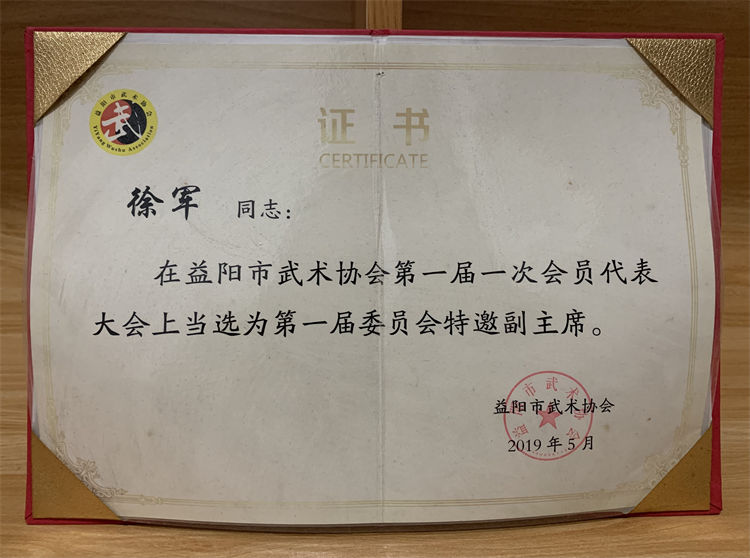 益阳市武术协会
武
YiYang Wushu Association
证书
CERTIFICATE
徐军 同志：
在益阳市武术协会第一届一次会员代表
大会上当选为第一届委员会特邀副主席。
益阳市武术协会
益阳市武术协会
2019年5月